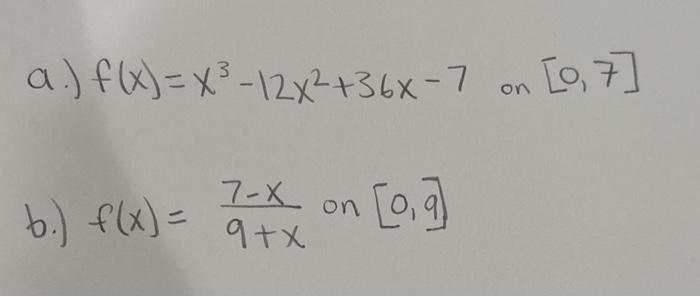 a.) f(x) = x³ - 12x² + 36x - 7 on [0, 7]
b.) f(x) = (7-x)/(9+x) on [0, 9]